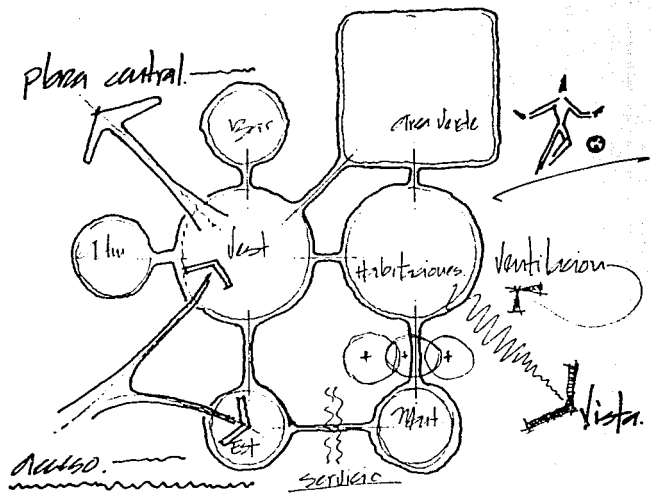 plaza central.
area verde
Vest
Habitaciones.
Ventilacion
Vista.
Est
acceso.
Servicio